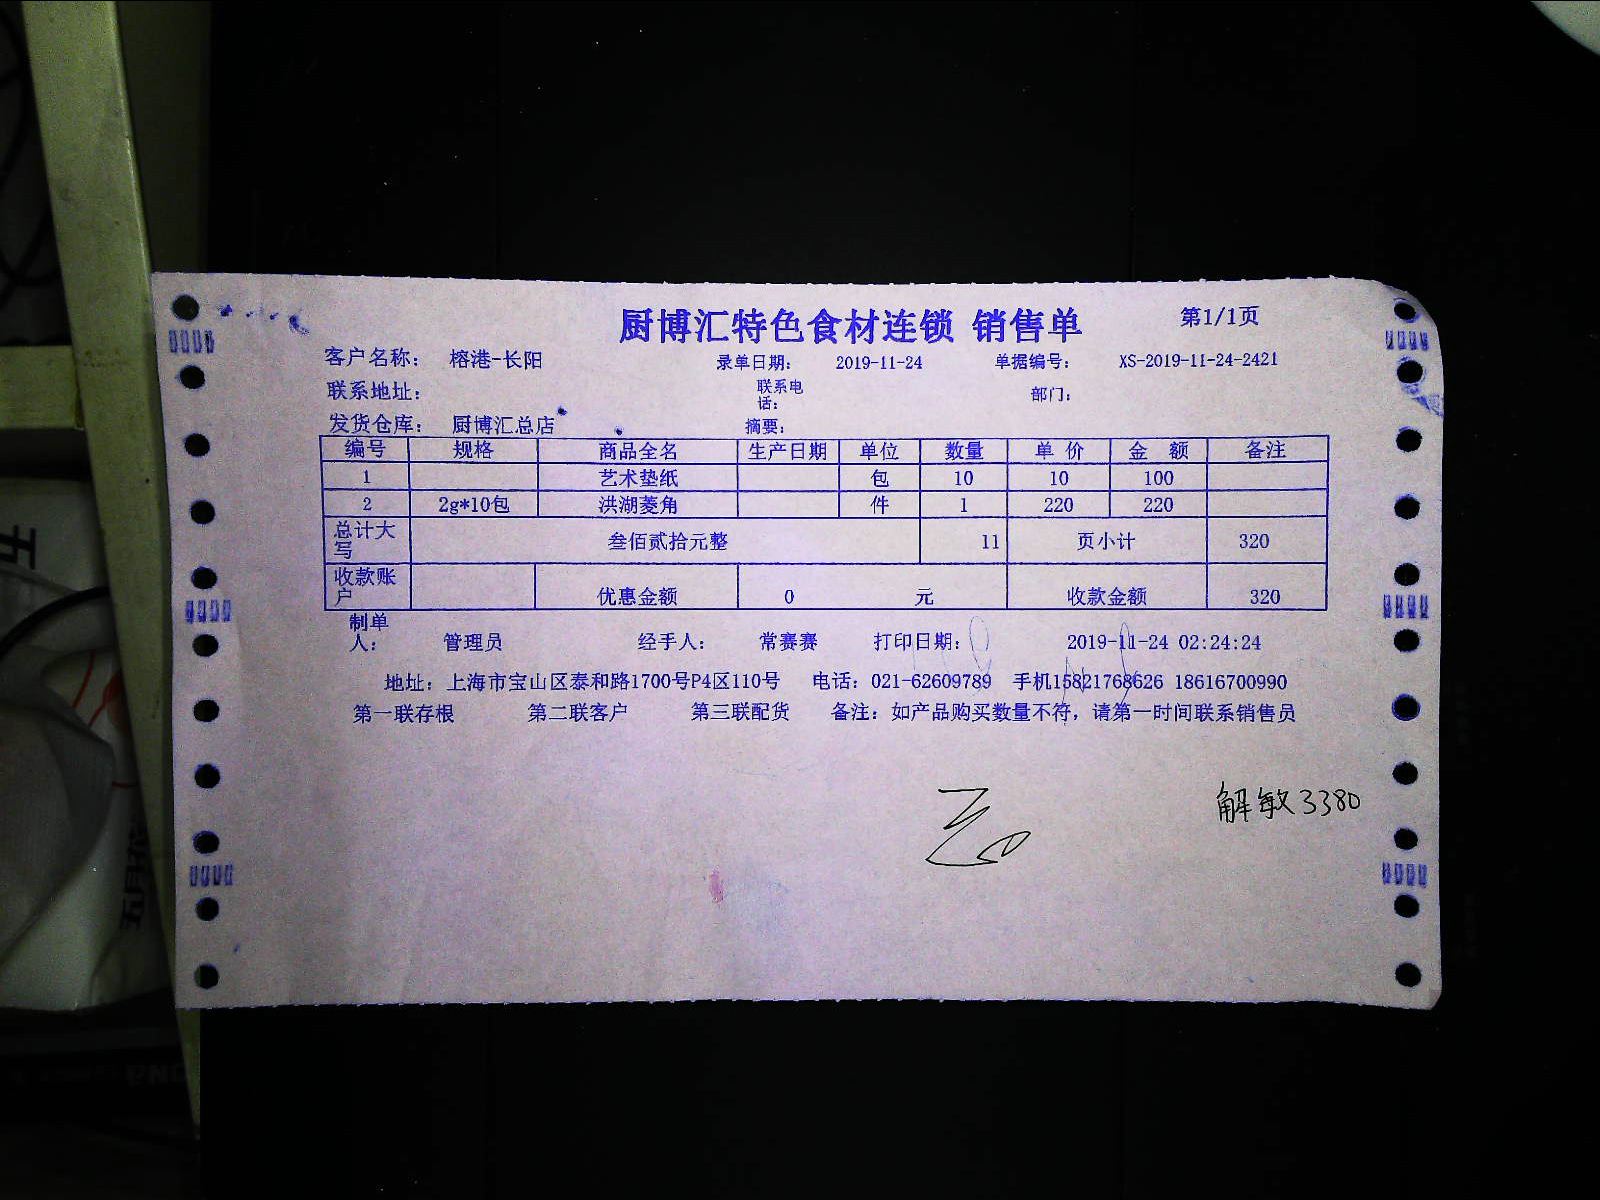 厨博汇特色食材连锁 销售单 第1/1页
客户名称: 榕港-长阳 录单日期: 2019-11-24 单据编号: XS-2019-11-24-2421
联系地址: 联系电话: 部门:
发货仓库: 厨博汇总店 摘要:
编号 规格 商品全名 生产日期 单位 数量 单 价 金 额 备注
1 艺术垫纸 包 10 10 100
2 2g*10包 洪湖菱角 件 1 220 220
总计大写 叁佰贰拾元整 11 页小计 320
收款账户 优惠金额 0 元 收款金额 320
制单人: 管理员 经手人: 常赛赛 打印日期: 2019-11-24 02:24:24
地址: 上海市宝山区泰和路1700号P4区110号 电话: 021-62609789 手机15821768626 18616700990
第一联存根 第二联客户 第三联配货 备注: 如产品购买数量不符, 请第一时间联系销售员
解敏3380